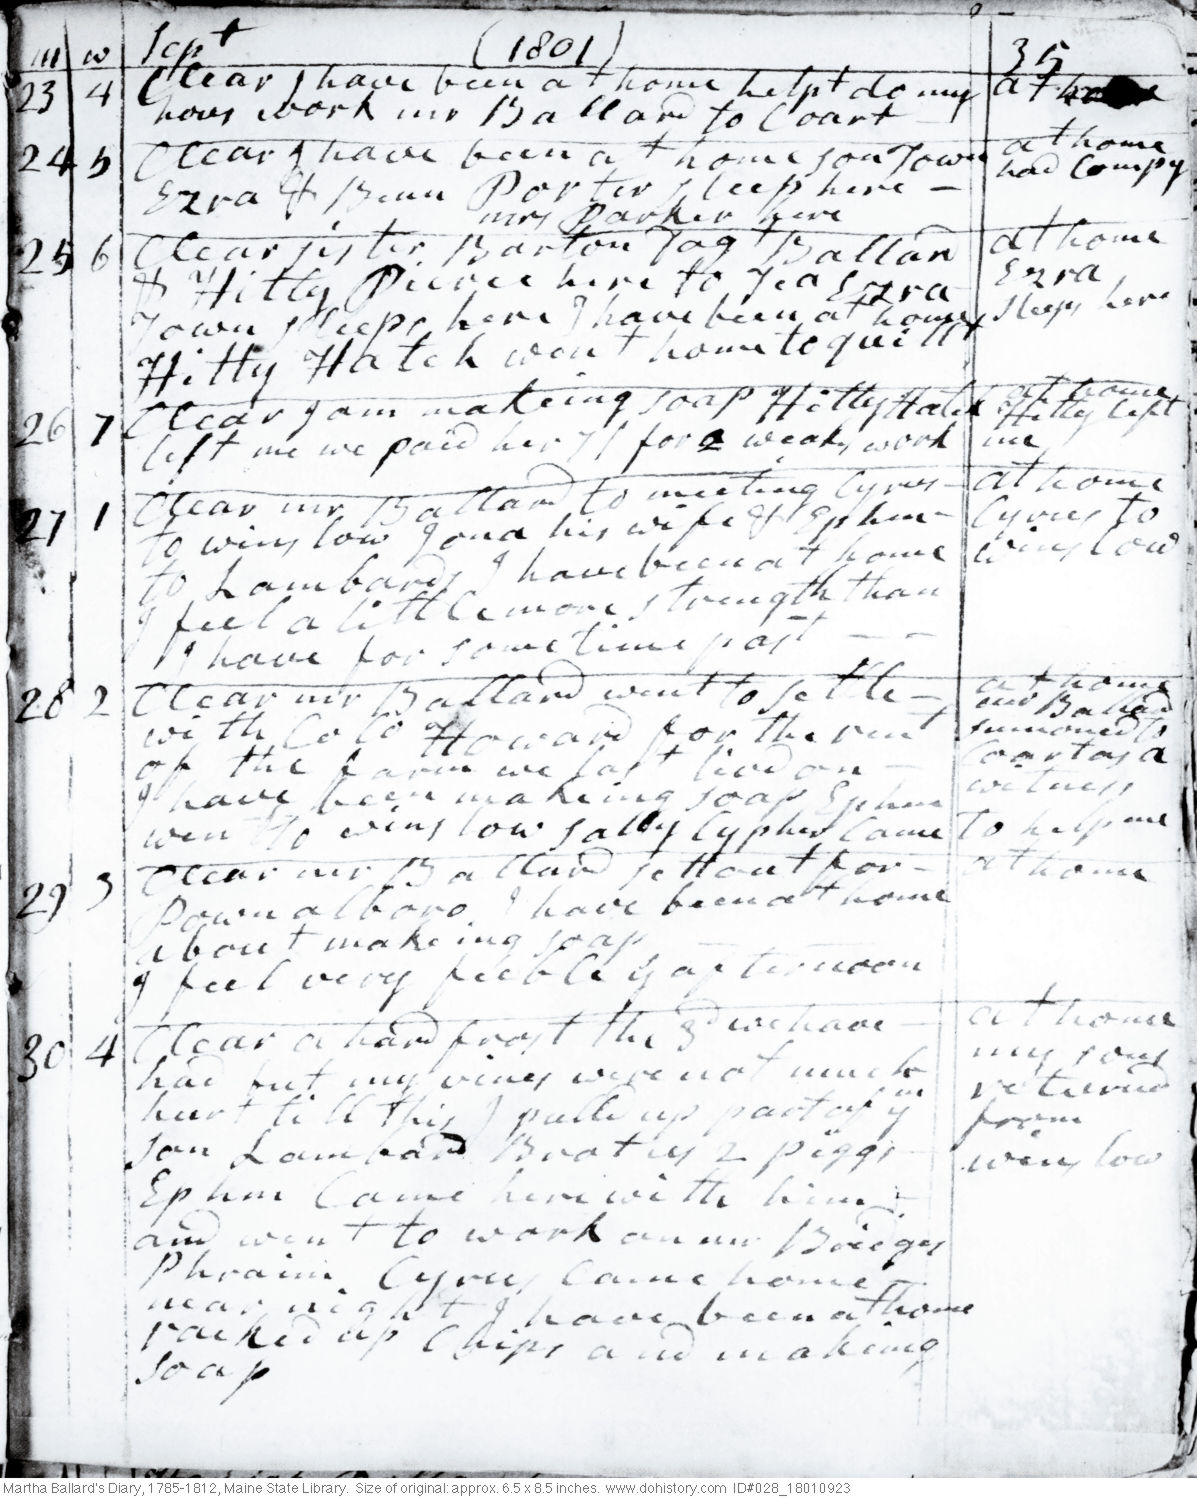 m w Sept (1801) 35
23 4 Clear I have been at home helpt do my at home
hous work mr Ballard to Coart
24 5 Clear I have been at home son Town at home
Ezra & Benn Porter sleep here had Compy
mrs Parker here
25 6 Clear sister Barton Dagt Ballard at home
& Hitty Pierce here to Tea Ezra Ezra
Town sleeps here I have been at home sleeps here
Hitty Hatch went home to quillt
26 7 Clear I am makeing soap Hitty Hatch at home
left me we paid her 7/ for 2 weaks work Hitty left
me
27 1 Clear mr Ballard to meeting Cyrus at home
to winslow Jona his wife & Ephm Cyrus to
to Lambards I have been at home winslow
I feel a little more strength than
I have for some time past
28 2 Clear mr Ballard went to settle at home
with Colo Howard for the rent mr Ballard
of the farm we last livd on summond to
I have been makeing soap Ephm Coart as a
went to winslow sally Cypher Came witness
to help me
29 3 Clear mr Ballard sett out for at home
Pownalboro I have been at home
about makeing soap
I feel very feeble ys afternoon
30 4 Clear a hard frost the 3d we have at home
had but my vines were not much my sons
hurt till this I pulld up part of ym returnd
son Lambard Brot us 2 piggs from
Ephm Came here with him winslow
and went to work on mr Bridges
Phraim Cyrus Came home
near night I have been at home
racked up Chips and makeing
soap
Martha Ballard's Diary, 1785-1812, Maine State Library. Size of original: approx. 6.5 x 8.5 inches. www.dohistory.com ID#028_18010923